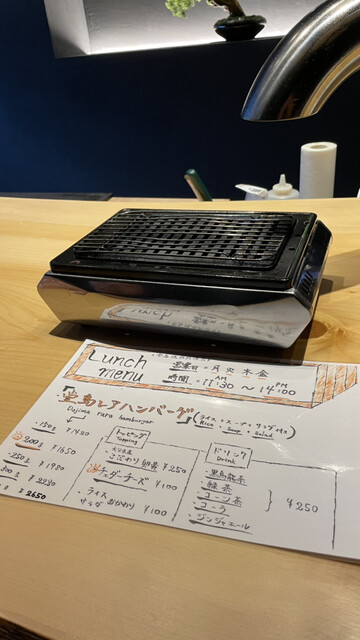 Lunch
menu
営業日 = 月火木金
時間 = AM 11:30 ～ PM 14:00
『堂島レアハンバーグ』(ライス・スープ・サラダ付き)
Dojima rare hamburger
Rice Soup Salad
・150g ¥1480
200g ¥1650
・250g ¥1980
300g ¥2280
¥2650
トッピング
Topping
こだわり卵黄 ¥250
チェダーチーズ ¥100
・ライス
サラダ おかわり ¥100
ドリンク
Drink
・黒烏龍茶
・緑茶
・コーン茶
・コーラ
・ジンジャエール
¥250